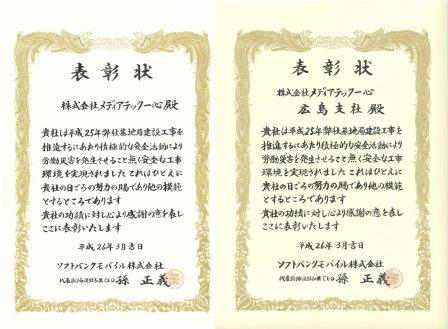 表彰状
株式会社メディアテック一心 殿
貴社は平成25年弊社基地局建設工事を
推進するにあたり積極的な安全活動により
労働災害を発生させること無く安全な工事
環境を実現されました これはひとえに
貴社の日ごろの努力の賜であり他の模範
とするところであります
貴社の功績に対し心より感謝の意を表し
ここに表彰いたします
平成26年3月吉日
ソフトバンクモバイル株式会社
代表取締役社長兼CEO 孫 正義
表彰状
株式会社メディアテック一心
広島支社 殿
貴社は平成25年弊社基地局建設工事を
推進するにあたり積極的な安全活動により
労働災害を発生させること無く安全な工事
環境を実現されました これはひとえに
貴社の日ごろの努力の賜であり他の模範
とするところであります
貴社の功績に対し心より感謝の意を表し
ここに表彰いたします
平成26年3月吉日
ソフトバンクモバイル株式会社
代表取締役社長兼CEO 孫 正義